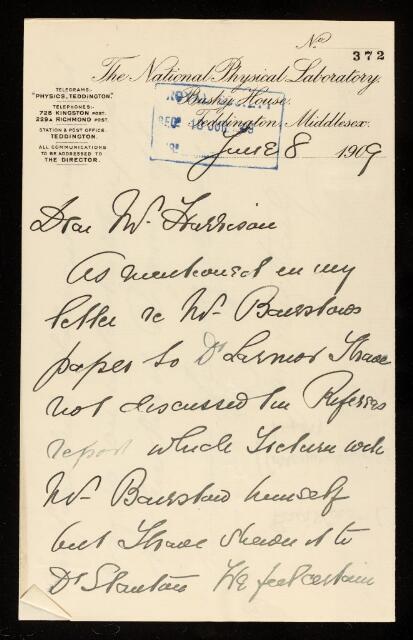 No
372
The National Physical Laboratory,
Bushy House,
Teddington, Middlesex.
TELEGRAMS:-
"PHYSICS, TEDDINGTON."
TELEPHONES:-
728 KINGSTON POST.
229A RICHMOND POST.
STATION & POST OFFICE:
TEDDINGTON.
ALL COMMUNICATIONS
TO BE ADDRESSED TO
THE DIRECTOR.
June 8 1909
Dear Mr Harrison
As mentioned in my
letter re Mr Bairstow's
paper to Dr Larmor I have
not discussed the Referees
report which I return with
Mr Bairstow himself
but I have shewn it to
Dr Stanton We feel certain